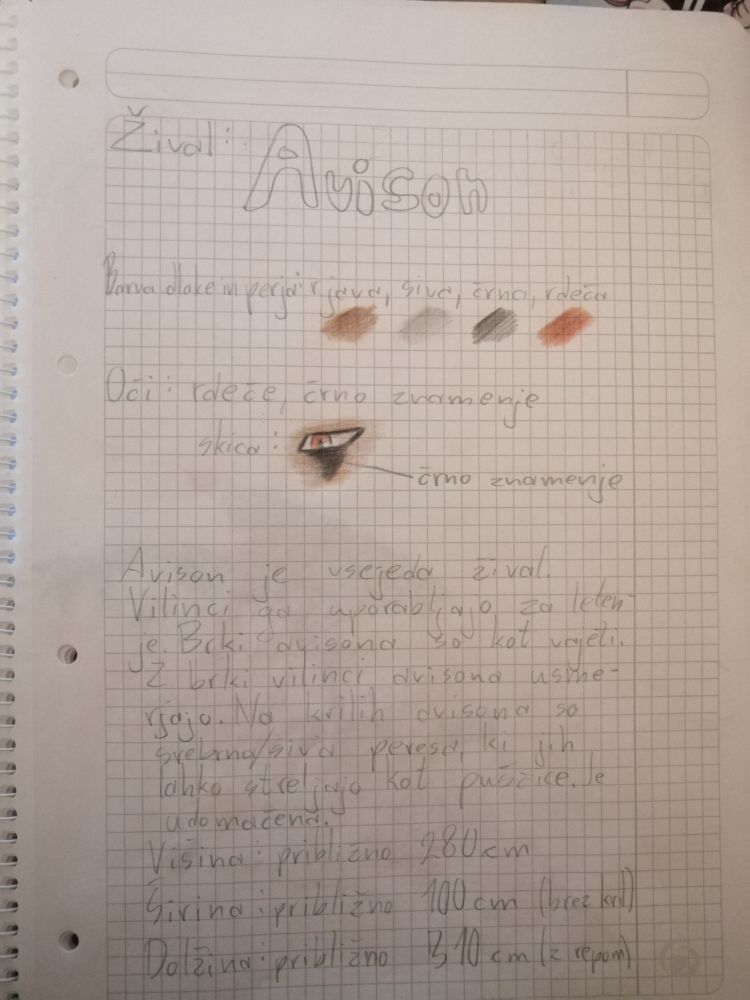 Žival: Avison
Barva dlake in perja: rjava, siva, črna, rdeča
Oči: rdeče, črno znamenje
skica:
črno znamenje
Avison je vsejeda žival.
Vilinci ga uporabljajo za leten-
je. Brki avisona so kot vajeti.
Z brki vilinci avisona usme-
rjajo. Na krilih avisona so
srebrna/siva peresa, ki jih
lahko streljajo kot puščice. Je
udomačena.
Višina: približno 280 cm
Širina: približno 100 cm (brez kril)
Dolžina: približno 310 cm (z repom)